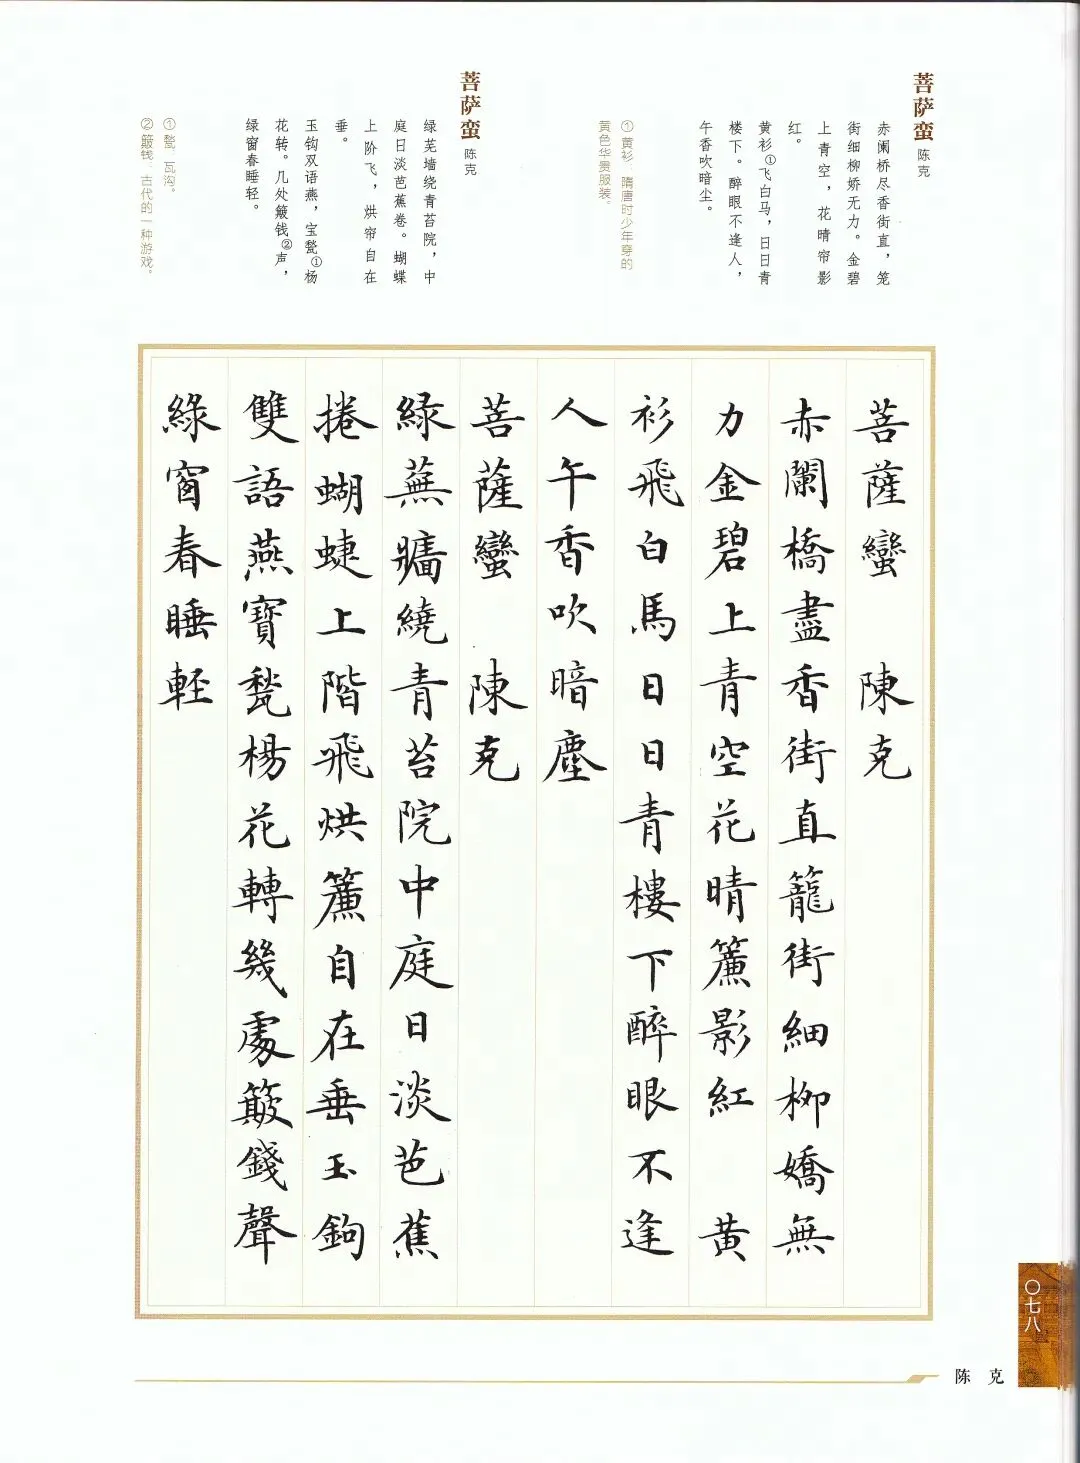 菩萨蛮 陈克
赤阑桥尽香街直，笼
街细柳娇无力。金碧
上青空，花晴帘影
红。
黄衫①飞白马，日日青
楼下。醉眼不逢人，
午香吹暗尘。
① 黄衫：隋唐时少年穿的
黄色华贵服装。
菩萨蛮 陈克
绿芜墙绕青苔院，中
庭日淡芭蕉卷。蝴蝶
上阶飞，烘帘自在
垂。
玉钩双语燕，宝甃①杨
花转。几处簸钱②声，
绿窗春睡轻。
① 甃：瓦沟。
② 簸钱：古代的一种游戏。
菩薩蠻 陳克
赤闌橋盡香街直籠街細柳嬌無
力金碧上青空花晴簾影紅 黄
衫飛白馬日日青樓下醉眼不逢
人午香吹暗塵
菩薩蠻 陳克
綠蕪牆繞青苔院中庭日淡芭蕉
捲蝴蜨上階飛烘簾自在垂玉鉤
雙語燕寶甃楊花轉幾處簸錢聲
綠窗春睡輕
〇七八
陈 克